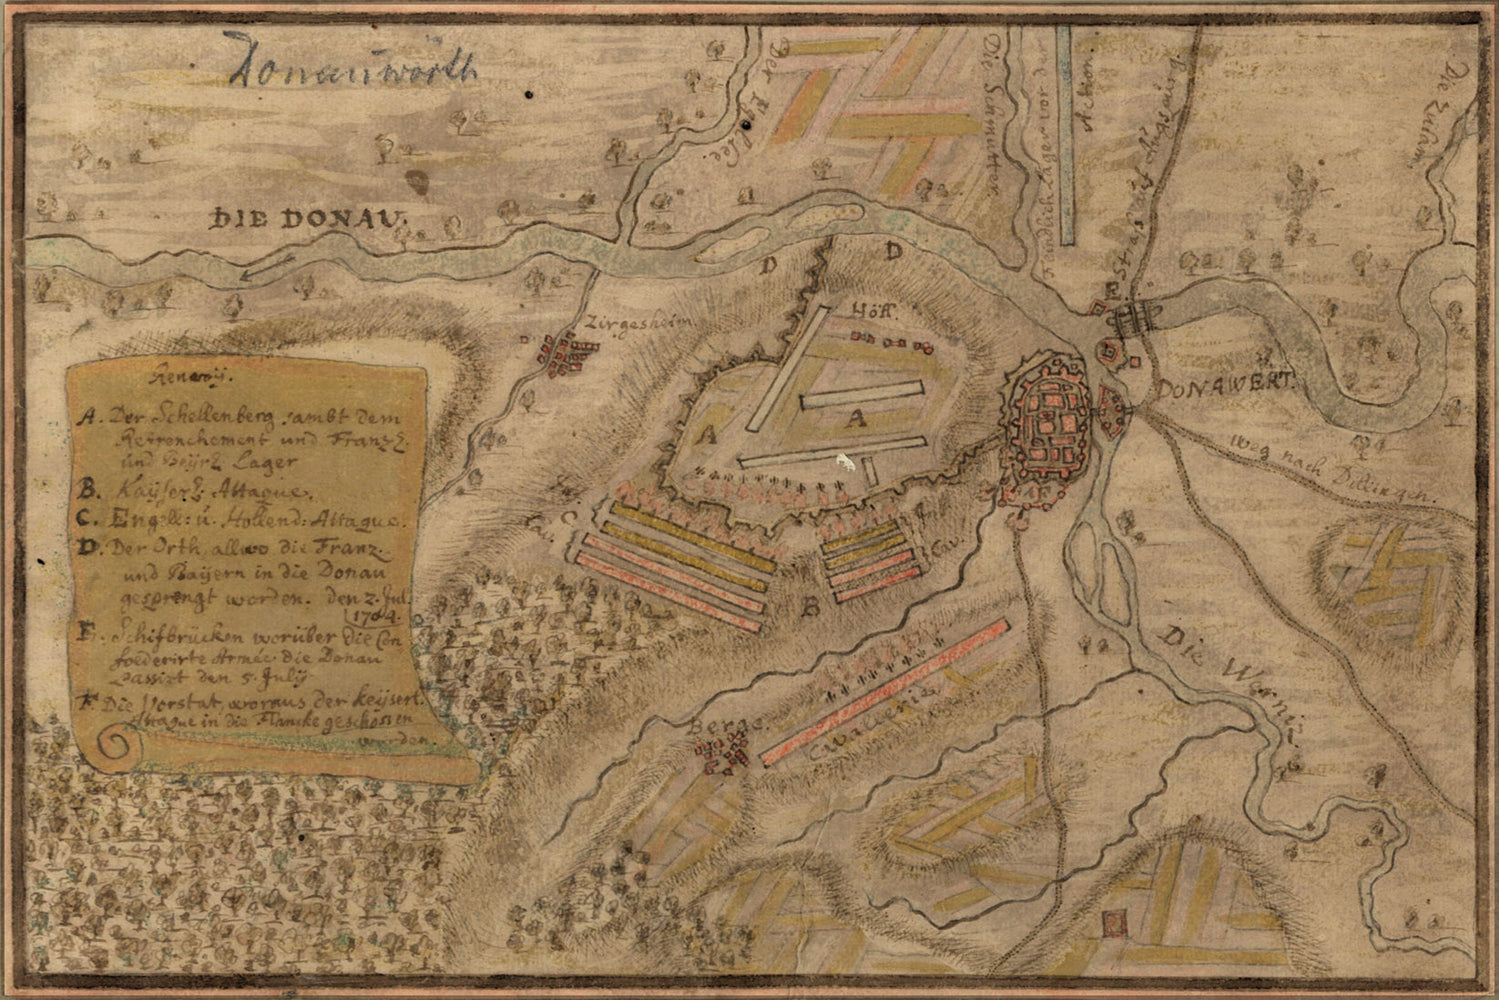 Donauwörth
DIE DONAU.
Der Egelsee
Die Schmutter
Feindlich Lager vor der
Action
Straß auf Augspurg
Die Zusam.
D
D
Zirgesheim.
Höff.
E
A
A
DONAWERT.
Weg nach Dillingen.
Renvoÿ.
A. Der Schellenberg sambt dem
Retrenchement und Franzꝭ.
und Beÿrꝭ Lager
B. Kaÿserꝭ: Attaque.
C. Engell: ú. Hollend: Attaque.
D. Der Orth, allwo die Franz.
und Baÿern in die Donau
gesprengt worden. den 2. Jul.
1704.
E. Schifbrücken worüber die Con
foederirte Armée die Donau
Passirt den 5. Julÿ
F. Die Vorstat, woraus der keÿserl.
Attaque in die Flancke geschossen
worden.
C
Cav.
Cav.
B
F
Die Wernitz
Berge.
Cavallerie